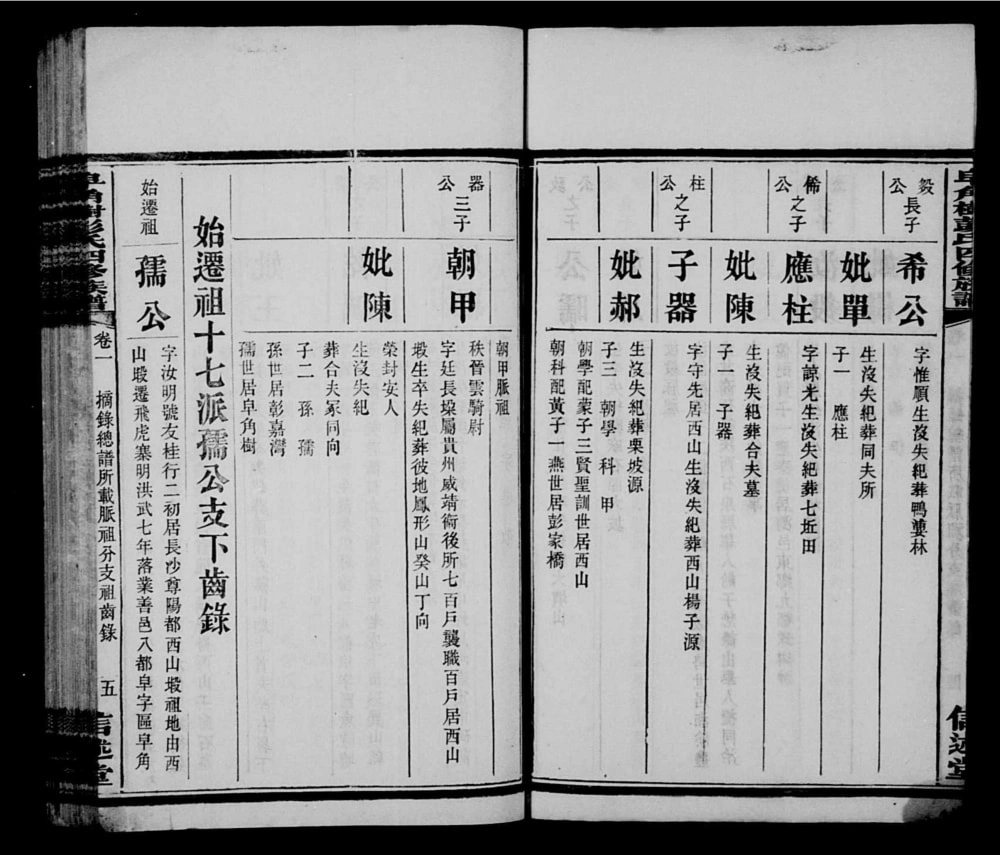 毅公長子
希公
字惟願生沒失紀葬鴨婁林
妣單
生沒失紀葬同夫所
子一　應柱
俙公之子
應柱
字諒先生沒失紀葬七坵田
妣陳
生沒失紀葬合夫墓
子一　子器
柱公之子
子器
字守先居西山生沒失紀葬西山楊子源
妣郝
生沒失紀葬栗坡源
子三　朝學　科　甲
朝學配蒙子三賢聖訓世居西山
朝科配黃子一燕世居彭家橋
器公三子
朝甲
朝甲脈祖
秩晉雲騎尉
字廷長垜屬貴州威靖衛後所七百戶襲職百戶居西山
塅生卒失紀葬彼地鳳形山癸山丁向
妣陳
榮封安人
生沒失紀
葬合夫冢同向
子二　孫　孺
孫世居彰嘉灣
孺世居皁角樹
始遷祖十七派孺公支下齒錄
始遷祖
孺公
字汝明號友桂行二初居長沙尊陽都西山塅祖地由西
山塅遷飛虎寨明洪武七年落業善邑八都皁字區皁角
皁角樹彭氏四修族譜
卷一
摘錄總譜所載脈祖分支祖齒錄
五
信述堂